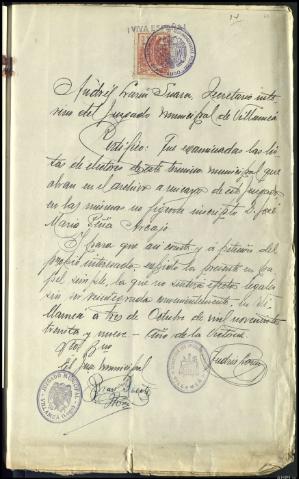 ¡VIVA ESPAÑA!
Andrés García Suara, Secretario inte-
rino del Juzgado municipal de Villamea
Certifico: Que examinadas las lis-
tas de electores de este termino municipal que
obran en el archivo a mi cargo de este Juzgado
en las mismas no figura inscripto D. José
Maria Piña Arcajo
Y para que asi conste y a peticion del
propio interesado, expido la presente en pa-
pel simple, la que no surtira efectos legales
sin ser reintegrada convenientemente. En Vi-
llamea a tres de Octubre de mil novecientos
treinta y nueve - Año de la Victoria.
Vto. Bno
El Juez municipal
Andrés García
JUZGADO MUNICIPAL